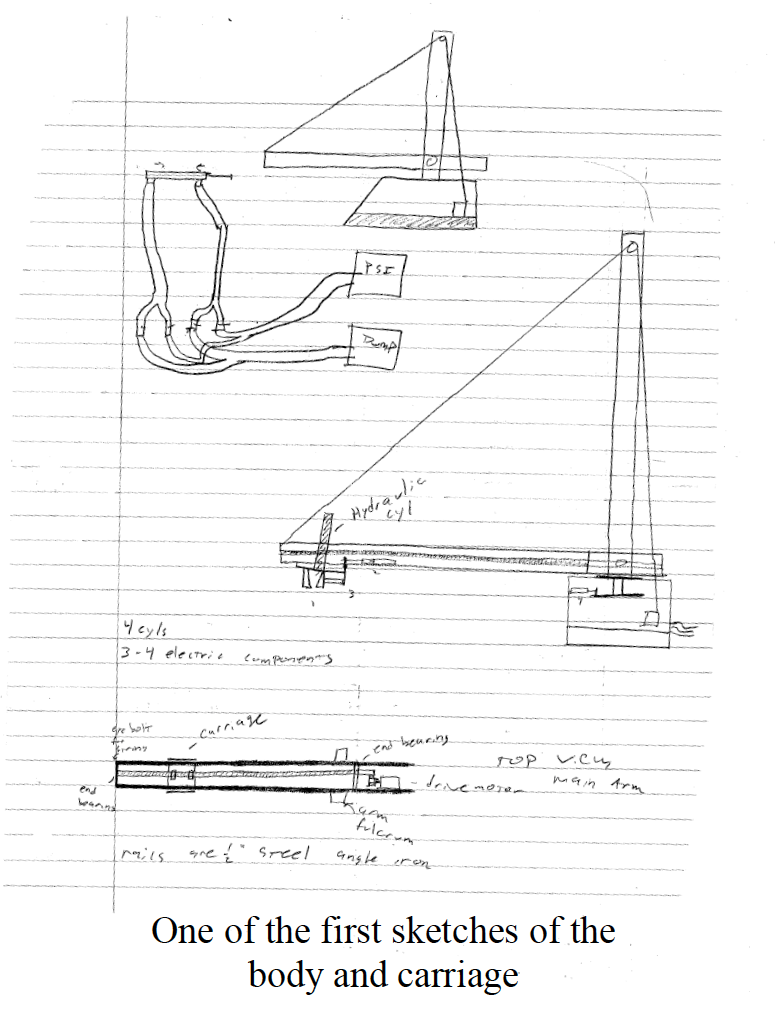 PSI
Dump
Hydraulic
cyl
1
3
4 cyls
3-4 electric components
eye bolt
carriage
end bearing
TOP View
main Arm
end
bearing
drive motor
arm
fulcrum
rails are 1/2" steel angle iron
One of the first sketches of the
body and carriage